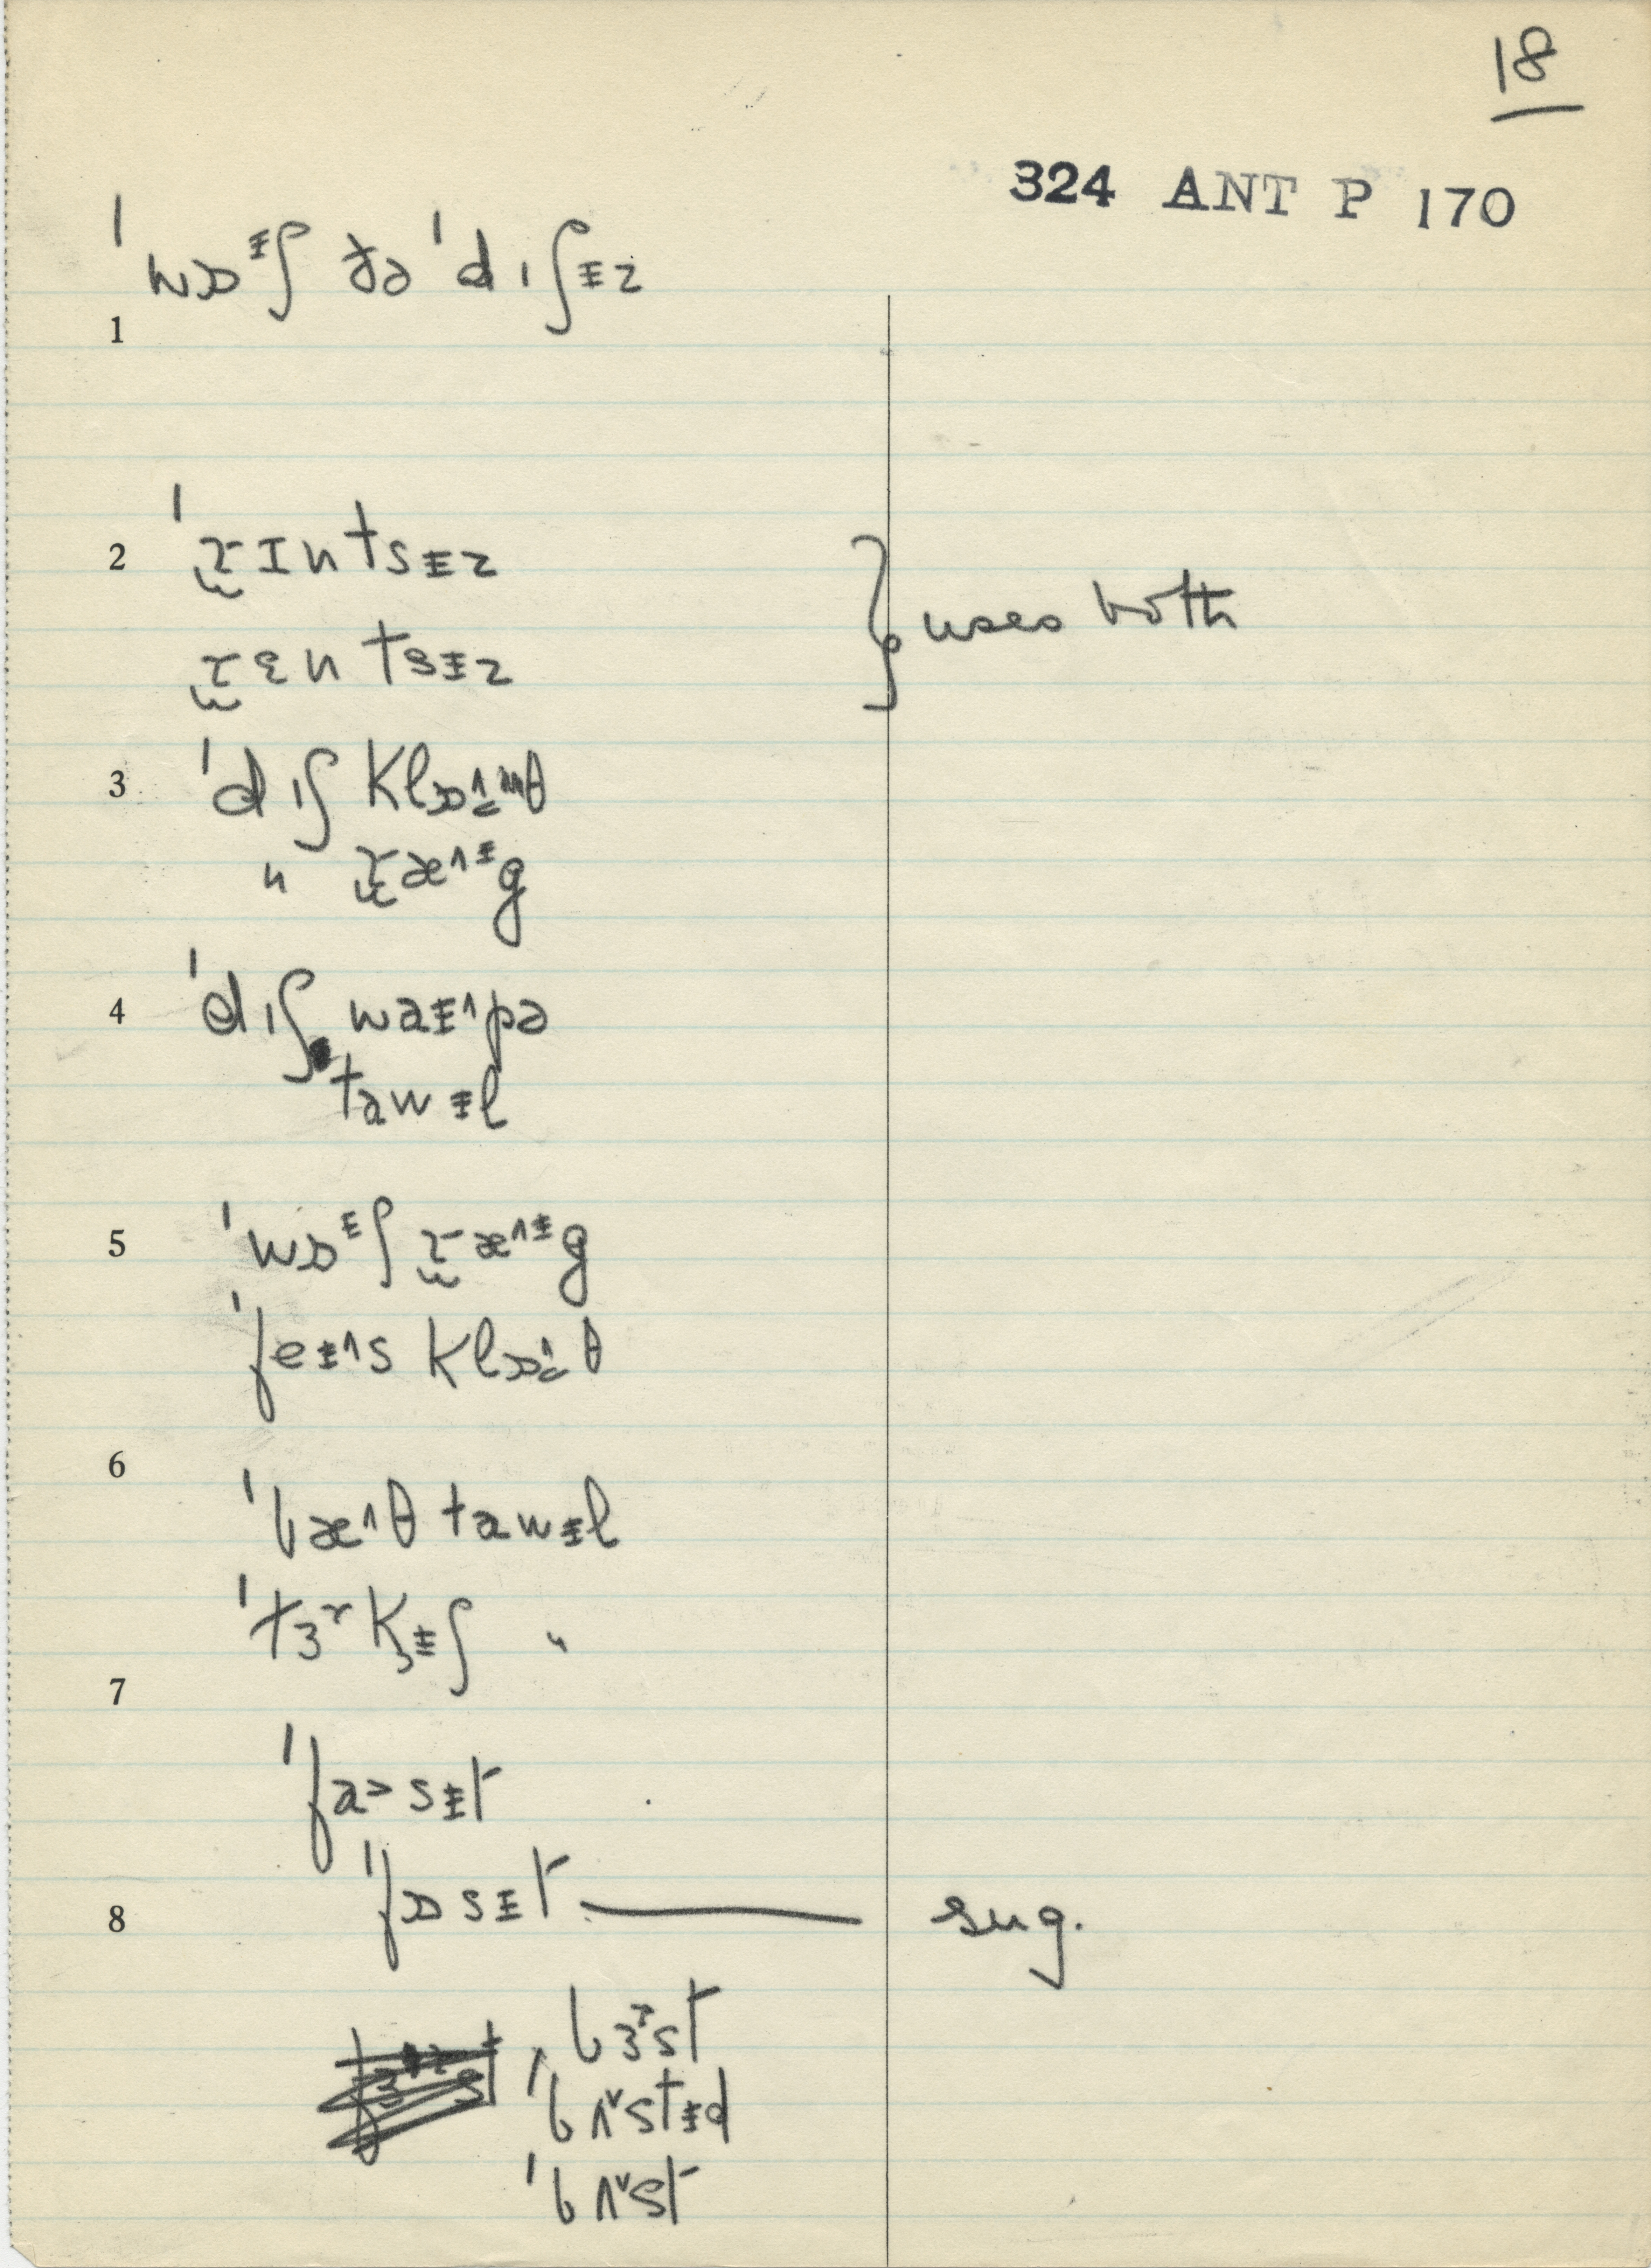 18
324 ANT P 170
ˈwɒᵻʃ ðə ˈdɪʃᵻz
1
2 ˈɹ̫ɪntsᵻz
ɹ̫ɛntsᵻz } uses both
3 ˈdɪʃ klɒ θ
" ɹ̫æ^ᵻg
4 ˈdɪʃ waᵻ^pə
tawᵻl
5 ˈwɒᵻʃ ɹ̫æ^ᵻg
ˈfeᵻ^s klɒ θ
6
ˈbæ^θ tawᵻl
ˈtɜʳkᵻʃ "
7
ˈfa>sᵻt
8 ˈfɒsᵻt — sug.
bɜʳst
ˈbʌ˅stᵻd
ˈbʌ˅st